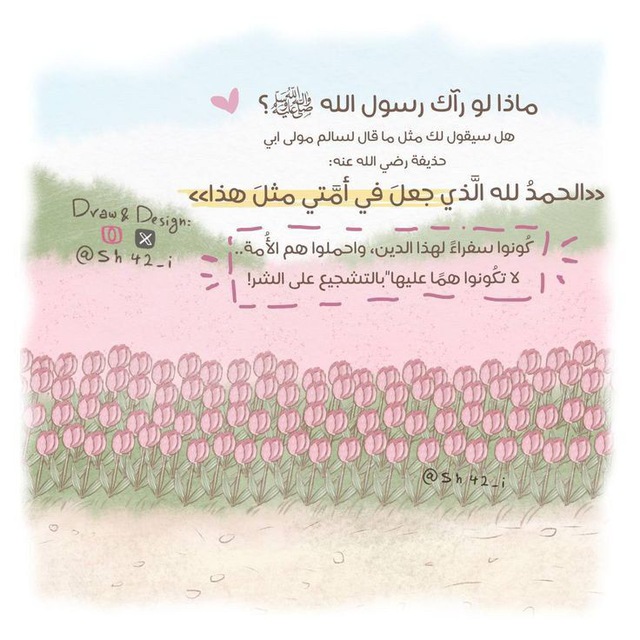 ماذا لو رآك رسول الله ﷺ ؟
هل سيقول لك مثل ما قال لسالم مولى ابي
حذيفة رضي الله عنه:
<<الحمدُ لله الَّذي جعلَ في أمَّتي مثلَ هذا>>
Draw & Design:
@Sh42_i
كُونوا سفراءً لهذا الدين، واحملوا هم الأُمة..
لا تكُونوا همًا عليها"بالتشجيع على الشر!
@Sh42_i